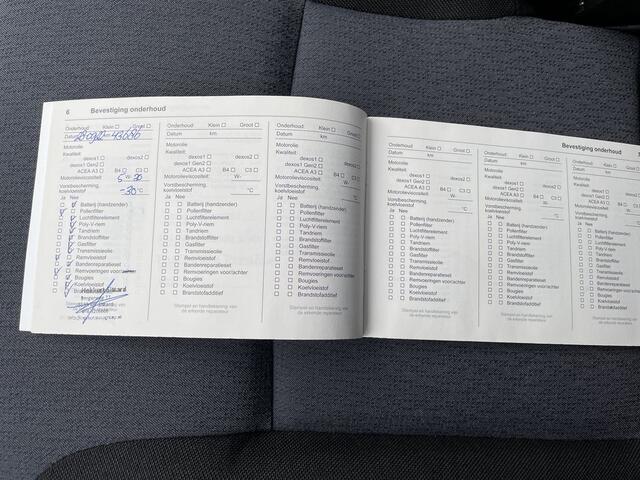 6 Bevestiging onderhoud
Onderhoud: Klein Groot
Datum km
Motorolie
Kwaliteit:
dexos1 dexos2
dexos1 Gen2
ACEA A3 B4 C3
Motorolieviscositeit: 5 W- 30
Vorstbescherming,
koelvloeistof -30 °C
Ja Nee
Batterij (handzender)
Pollenfilter
Luchtfilterelement
Poly-V-riem
Tandriem
Brandstoffilter
Gasfilter
Transmissieolie
Remvloeistof
Bandenreparatieset
Remvoeringen voor/achter
Bougies
Koelvloeistof
Brandstofadditief
Onderhoud: Klein Groot
Datum km
Motorolie
Kwaliteit:
dexos1 dexos2
dexos1 Gen2
ACEA A3 B4 C3
Motorolieviscositeit: W-
Vorstbescherming,
koelvloeistof °C
Ja Nee
Batterij (handzender)
Pollenfilter
Luchtfilterelement
Poly-V-riem
Tandriem
Brandstoffilter
Gasfilter
Transmissieolie
Remvloeistof
Bandenreparatieset
Remvoeringen voor/achter
Bougies
Koelvloeistof
Brandstofadditief
Stempel en handtekening van
de erkende reparateur
Onderhoud: Klein Groot
Datum km
Motorolie
Kwaliteit:
dexos1 dexos2
dexos1 Gen2
ACEA A3 B4 C3
Motorolieviscositeit: W-
Vorstbescherming,
koelvloeistof °C
Ja Nee
Batterij (handzender)
Pollenfilter
Luchtfilterelement
Poly-V-riem
Tandriem
Brandstoffilter
Gasfilter
Transmissieolie
Remvloeistof
Bandenreparatieset
Remvoeringen voor/achter
Bougies
Koelvloeistof
Brandstofadditief
Stempel en handtekening van
de erkende reparateur
Bevestiging onderhoud
Onderhoud: Klein Groot
Datum km
Motorolie
Kwaliteit:
dexos1 dexos2
dexos1 Gen2
ACEA A3 B4 C3
Motorolieviscositeit: W-
Vorstbescherming,
koelvloeistof °C
Ja Nee
Batterij (handzender)
Pollenfilter
Luchtfilterelement
Poly-V-riem
Tandriem
Brandstoffilter
Gasfilter
Transmissieolie
Remvloeistof
Bandenreparatieset
Remvoeringen voor/achter
Bougies
Koelvloeistof
Brandstofadditief
Stempel en handtekening van
de erkende reparateur
Onderhoud: Klein Groot
Datum km
Motorolie
Kwaliteit:
dexos1 dexos2
dexos1 Gen2
ACEA A3 B4 C3
Motorolieviscositeit: W-
Vorstbescherming,
koelvloeistof °C
Ja Nee
Batterij (handzender)
Pollenfilter
Luchtfilterelement
Poly-V-riem
Tandriem
Brandstoffilter
Gasfilter
Transmissieolie
Remvloeistof
Bandenreparatieset
Remvoeringen voor/achter
Bougies
Koelvloeistof
Brandstofadditief
Stempel en handtekening van
de erkende reparateur
Onderhoud: Klein
Datum km
Motorolie
Kwaliteit:
dexos1
dexos1 Gen2
ACEA A3 B4
Motorolieviscositeit:
Vorstbescherming,
koelvloeistof
Ja Nee
Batterij (handzender)
Pollenfilter
Luchtfilterelement
Poly-V-riem
Tandriem
Brandstoffilter
Gasfilter
Transmissieolie
Remvloeistof
Bandenreparatieset
Remvoeringen
Bougies
Koelvloeistof
Brandstofadditief